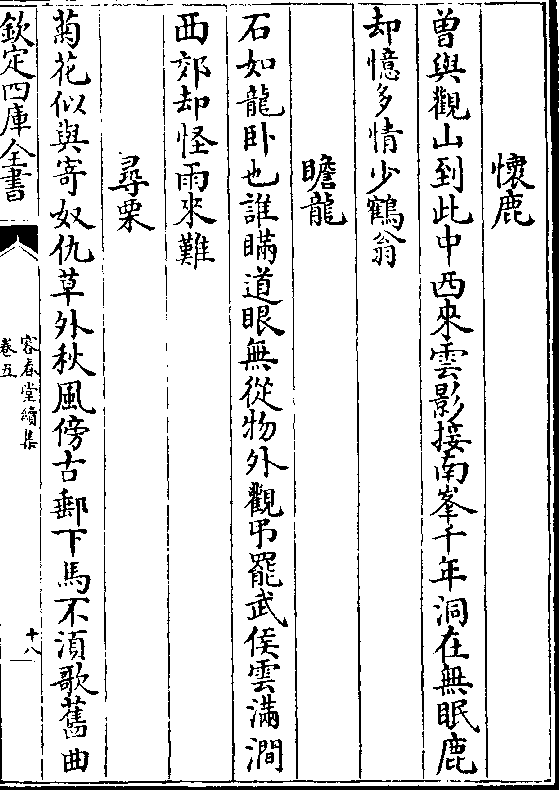 懷鹿
曽與觀山到此中西來雲影接南峯千年洞在無眠鹿
却憶多情少鶴翁
瞻龍
石如龍卧也誰瞞道眼無從物外觀弔罷武侯雲滿澗
西郊却怪雨來難
尋栗
菊花似與寄奴仇草外秋風傍古郵下馬不湏歌舊曲
欽定四庫全書
容春堂續集
卷五
十八